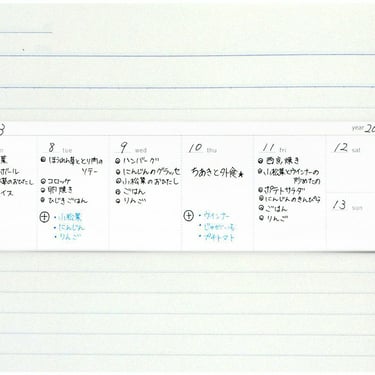 3
year 20
8 tue
ほうれん草ととり肉の
ソテー
コロッケ
卵焼き
ひじきごはん
・小松菜
・にんじん
・りんご
9 wed
ハンバーグ
にんじんのグラッセ
小松菜のおひたし
ごはん
りんご
10 thu
ちあきと外食★
・ウインナー
・じゃがいも
・プチトマト
11 fri
西京焼き
小松菜とウインナーの
炒めもの
ポテトサラダ
にんじんのきんぴら
ごはん
りんご
12 sat
13 sun
菜
ボール
菜のおひたし
イス